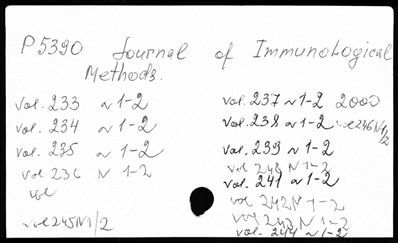 P5390 Journal of Immunological
Methods.
vol. 233 N 1-2
vol. 234 N 1-2
vol. 235 N 1-2
vol 236 N 1-2
vol
vol 245 N1/2
vol. 237 N 1-2 2000
vol. 238 N 1-2 vol 246 N1/2
vol. 239 N 1-2
vol 240 N 1-2
vol. 241 N 1-2
vol 242 N 1-2
vol 243 N 1-2
vol. 244 N 1-2